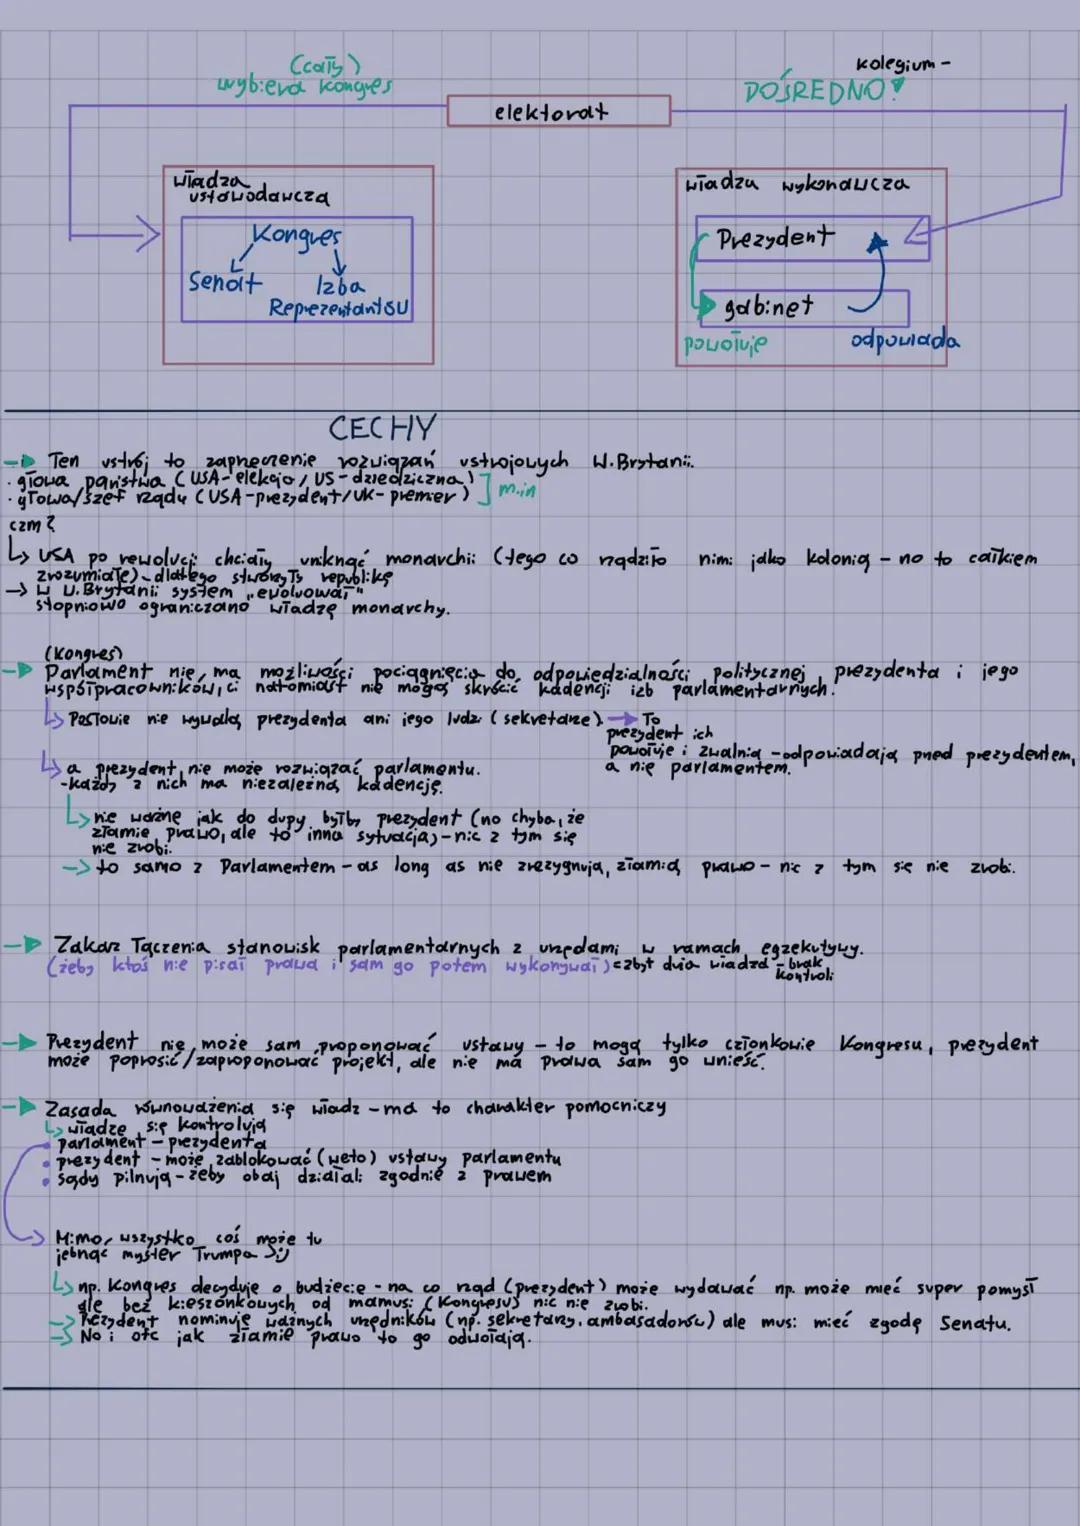 (cały)
wybiera kongres
kolegium -
POŚREDNO!
elektorat
władza
ustawodawcza
Kongres
Senat
Izba
Reprezentantów
władza wykonawcza
Prezydent
gabinet
powołuje
odpowiada
CECHY
Ten ustrój to zaprzeczenie rozwiązań ustrojowych W.Brytanii.
· głowa państwa (USA-elekcja / US - dziedziczna)
· głowa/szef rządu (USA -prezydent/UK- premier)
m.in
czm?
USA po rewolucji chciały uniknąć monarchii (tego co rządziło nimi jako kolonią - no to całkiem
zrozumiałe) - dlatego stworzyły republikę
→ w W.Brytanii system „ewoluował"
stopniowo ograniczano władzę monarchy.
(Kongres)
Parlament nie ma możliwości pociągnięcia do odpowiedzialności politycznej prezydenta i jego
współpracowników, ci natomiast nie mogą skrócić kadencji izb parlamentarnych.
Posłowie nie wywalą prezydenta ani jego ludzi (sekretarze) → To
prezydent ich
powołuje i zwalnia - odpowiadają przed prezydentem,
a nie parlamentem.
a prezydent nie może rozwiązać parlamentu.
-każdy z nich ma niezależną kadencję.
nie ważne jak do dupy byłby prezydent (no chyba, że
złamie prawo, ale to inna sytuacja) - nic z tym się
nie zrobi.
→ to samo z Parlamentem - as long as nie zrezygnują, złamią prawo - nic z tym się nie zrobi.
Zakaz łączenia stanowisk parlamentarnych z urzędami w ramach egzekutywy.
(żeby ktoś nie pisał prawa i sam go potem wykonywał) = zbyt duża władza - brak
kontroli
Prezydent nie może sam proponować ustawy - to mogą tylko członkowie Kongresu, prezydent
może poprosić/zaproponować projekt, ale nie ma prawa sam go wnieść.
Zasada równoważenia się władz - ma to charakter pomocniczy
władze się kontrolują
• parlament - prezydenta
• prezydent - może zablokować (weto) ustawy parlamentu
• sądy pilnują - żeby obaj działali zgodnie z prawem
Mimo wszystko coś może tu
jebnąć myster Trumpa :)
np. Kongres decyduje o budżecie - na co rząd (prezydent) może wydawać np. może mieć super pomysł
ale bez kieszonkowych od mamusi (Kongresu) nic nie zrobi.
→ Prezydent nominuje ważnych urzędników (np. sekretarzy, ambasadorów) ale musi mieć zgodę Senatu.
→ No i ofc jak złamie prawo to go odwołają.